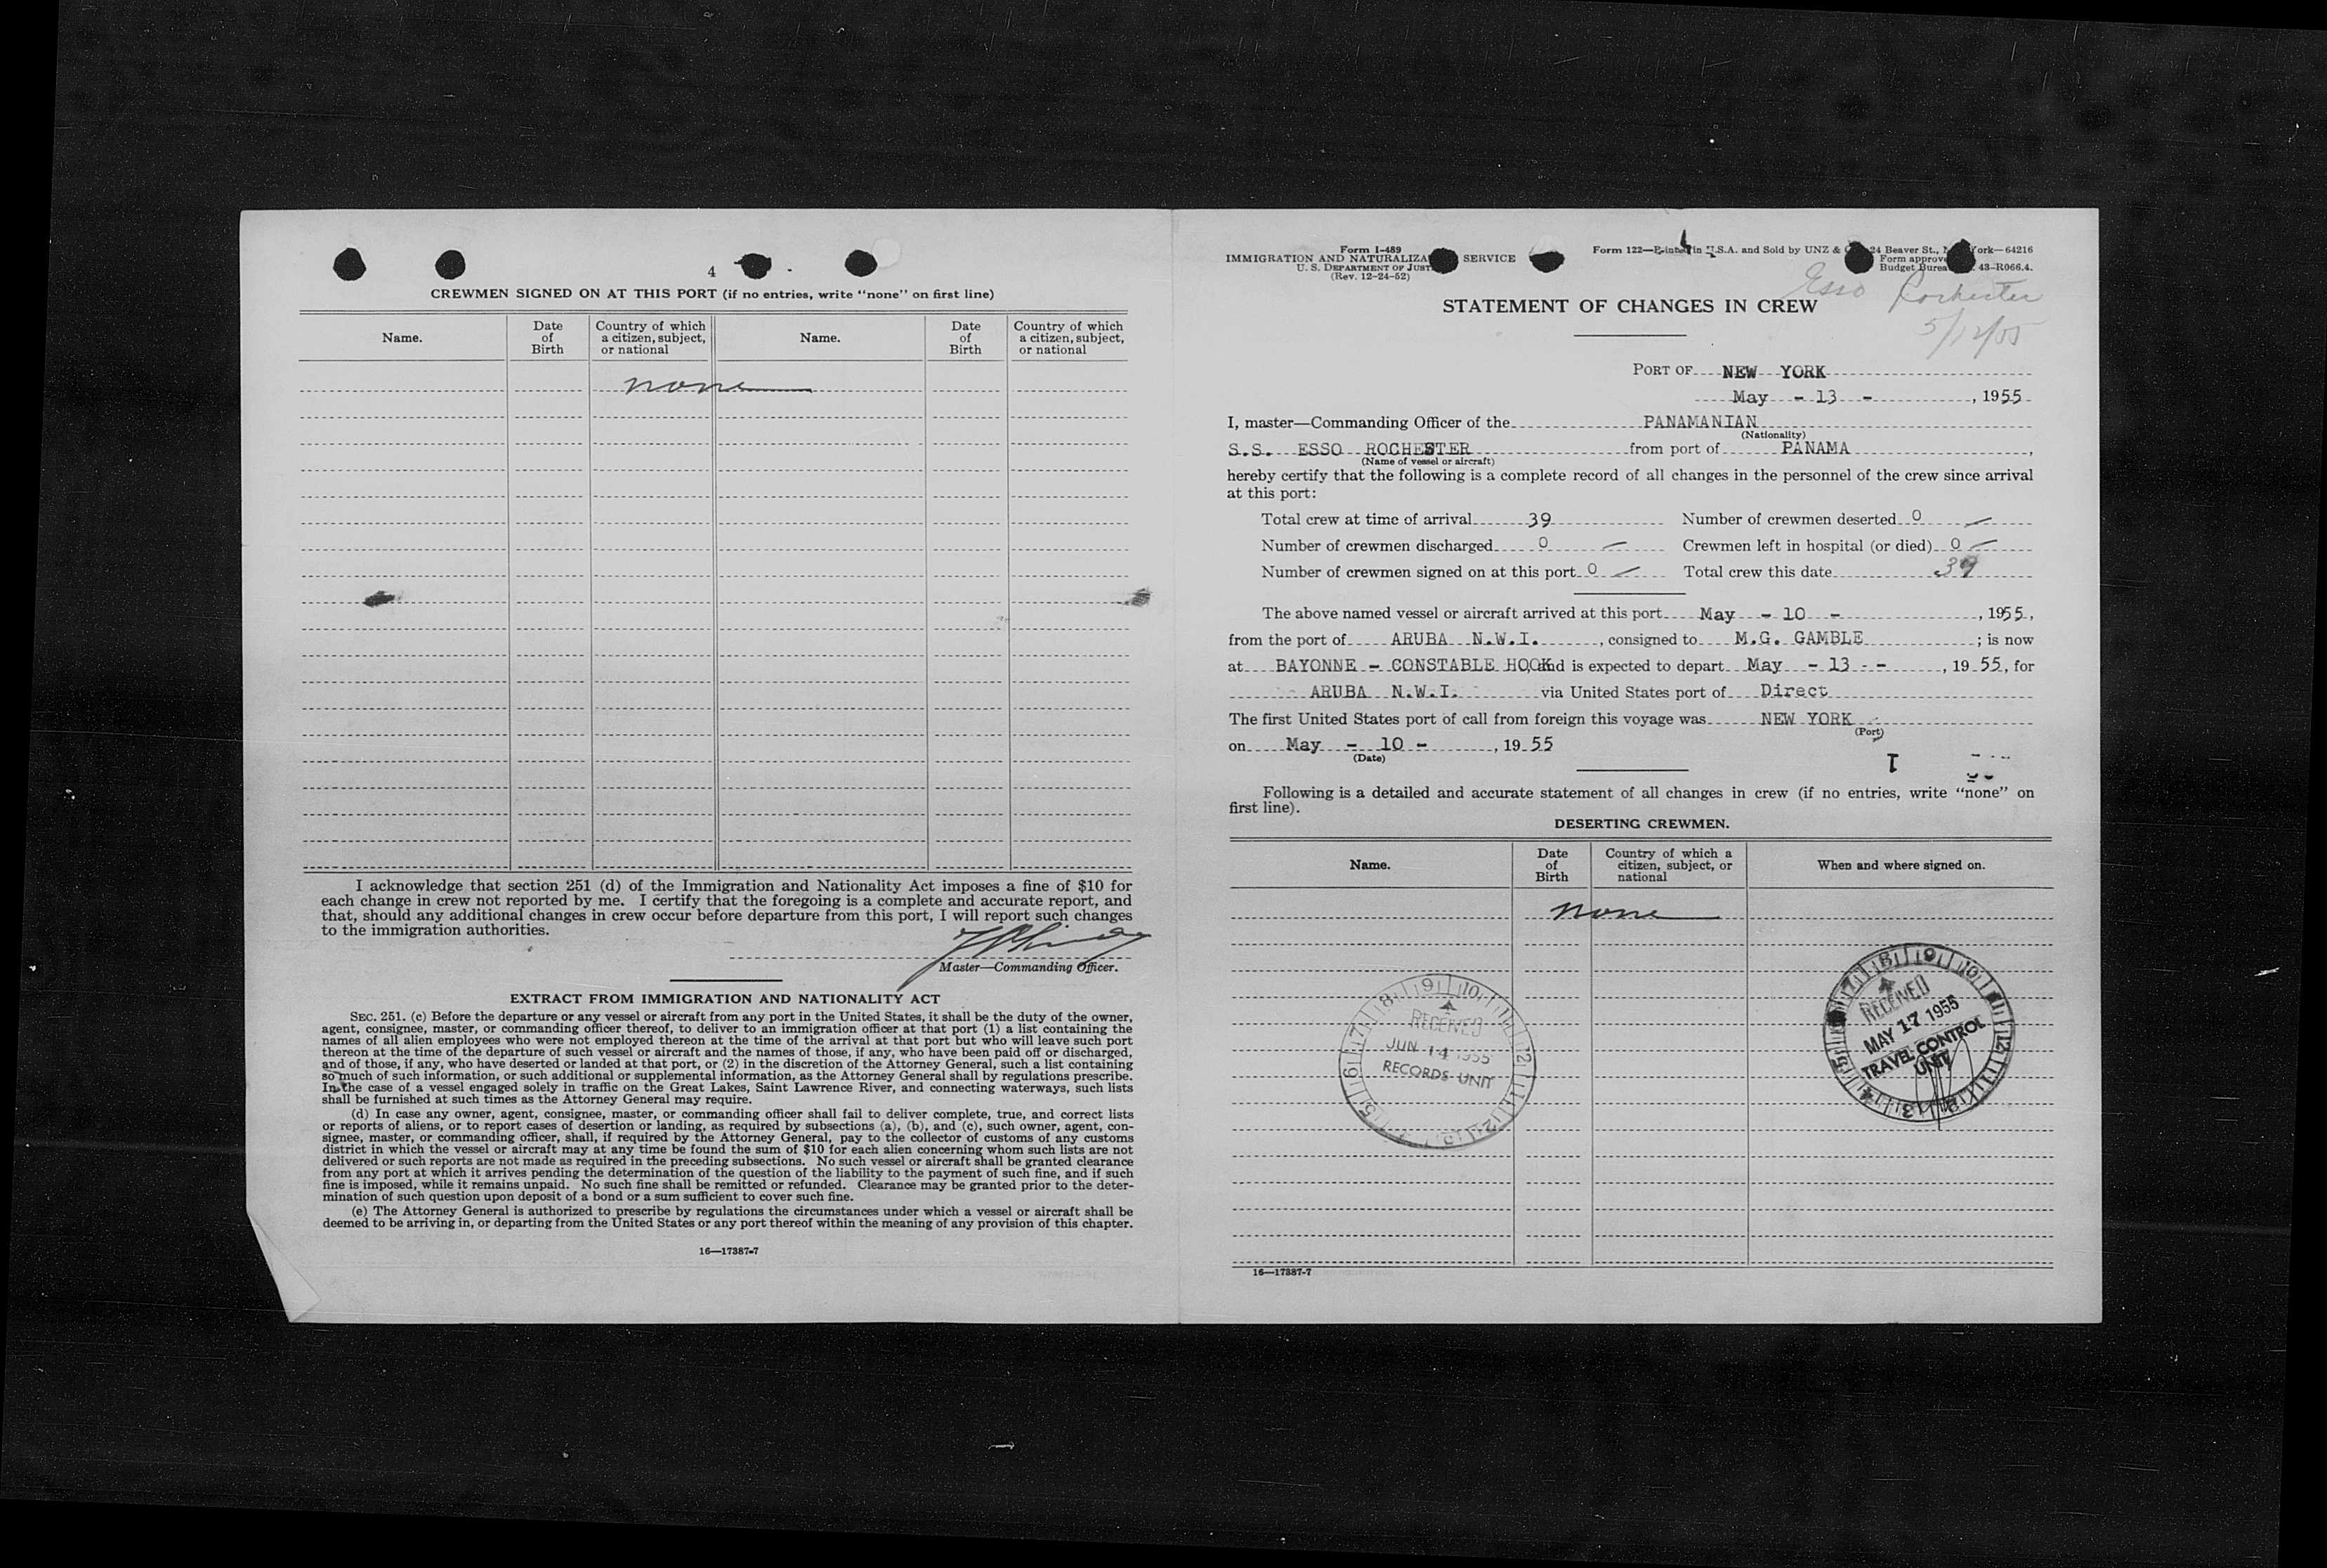 4
CREWMEN SIGNED ON AT THIS PORT (if no entries, write "none" on first line)
Name. Date of Birth Country of which a citizen, subject, or national Name. Date of Birth Country of which a citizen, subject, or national
none
I acknowledge that section 251 (d) of the Immigration and Nationality Act imposes a fine of $10 for
each change in crew not reported by me. I certify that the foregoing is a complete and accurate report, and
that, should any additional changes in crew occur before departure from this port, I will report such changes
to the immigration authorities.
Master—Commanding Officer.
EXTRACT FROM IMMIGRATION AND NATIONALITY ACT
SEC. 251. (c) Before the departure or any vessel or aircraft from any port in the United States, it shall be the duty of the owner,
agent, consignee, master, or commanding officer thereof, to deliver to an immigration officer at that port (1) a list containing the
names of all alien employees who were not employed thereon at the time of the arrival at that port but who will leave such port
thereon at the time of the departure of such vessel or aircraft and the names of those, if any, who have been paid off or discharged,
and of those, if any, who have deserted or landed at that port, or (2) in the discretion of the Attorney General, such a list containing
so much of such information, or such additional or supplemental information, as the Attorney General shall by regulations prescribe.
In the case of a vessel engaged solely in traffic on the Great Lakes, Saint Lawrence River, and connecting waterways, such lists
shall be furnished at such times as the Attorney General may require.
(d) In case any owner, agent, consignee, master, or commanding officer shall fail to deliver complete, true, and correct lists
or reports of aliens, or to report cases of desertion or landing, as required by subsections (a), (b), and (c), such owner, agent, con-
signee, master, or commanding officer, shall, if required by the Attorney General, pay to the collector of customs of any customs
district in which the vessel or aircraft may at any time be found the sum of $10 for each alien concerning whom such lists are not
delivered or such reports are not made as required in the preceding subsections. No such vessel or aircraft shall be granted clearance
from any port at which it arrives pending the determination of the question of the liability to the payment of such fine, and if such
fine is imposed, while it remains unpaid. No such fine shall be remitted or refunded. Clearance may be granted prior to the deter-
mination of such question upon deposit of a bond or a sum sufficient to cover such fine.
(e) The Attorney General is authorized to prescribe by regulations the circumstances under which a vessel or aircraft shall be
deemed to be arriving in, or departing from the United States or any port thereof within the meaning of any provision of this chapter.
16—17387-7
Form I-489
IMMIGRATION AND NATURALIZA SERVICE
U. S. DEPARTMENT OF JUST
(Rev. 12-24-52)
Form 122—Printed in U.S.A. and Sold by UNZ & 24 Beaver St., ork—64216
Form approv
Budget Burea 43-R066.4.
Esso Rochester
5/12/55
STATEMENT OF CHANGES IN CREW
PORT OF NEW YORK
May - 13 - , 1955
I, master—Commanding Officer of the PANAMANIAN
(Nationality)
S.S. ESSO ROCHESTER from port of PANAMA ,
(Name of vessel or aircraft)
hereby certify that the following is a complete record of all changes in the personnel of the crew since arrival
at this port:
Total crew at time of arrival 39 Number of crewmen deserted 0
Number of crewmen discharged 0 Crewmen left in hospital (or died) 0
Number of crewmen signed on at this port 0 Total crew this date 39
The above named vessel or aircraft arrived at this port May - 10 - , 1955,
from the port of ARUBA N.W.I. , consigned to M.G. GAMBLE ; is now
at BAYONNE - CONSTABLE HOOK, and is expected to depart May - 13 - - , 19 55, for
ARUBA N.W.I. via United States port of Direct
The first United States port of call from foreign this voyage was NEW YORK
(Port)
on May - 10 - , 19 55
(Date)
Following is a detailed and accurate statement of all changes in crew (if no entries, write "none" on
first line).
DESERTING CREWMEN.
Name. Date of Birth Country of which a citizen, subject, or national When and where signed on.
none
RECEIVED
JUN 14 1955
RECORDS UNIT
RECEIVED
MAY 17 1955
TRAVEL CONTROL
UNIT
16—17387-7